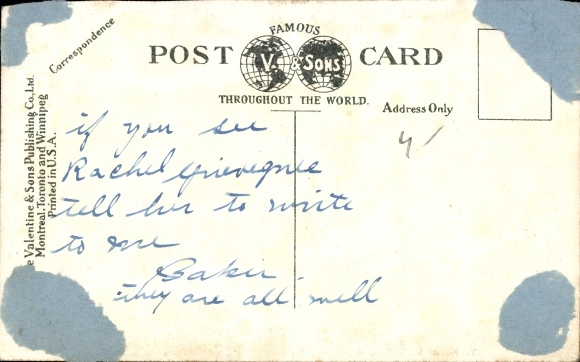 FAMOUS
POST CARD
V. & SONS
THROUGHOUT THE WORLD.
Correspondence
Address Only
e Valentine & Sons Publishing Co., Ltd.
Montreal, Toronto and Winnipeg
Printed in U.S.A.
4/
if you see
Rachel Grievegnee
tell her to write
to me
Baker
they are all well